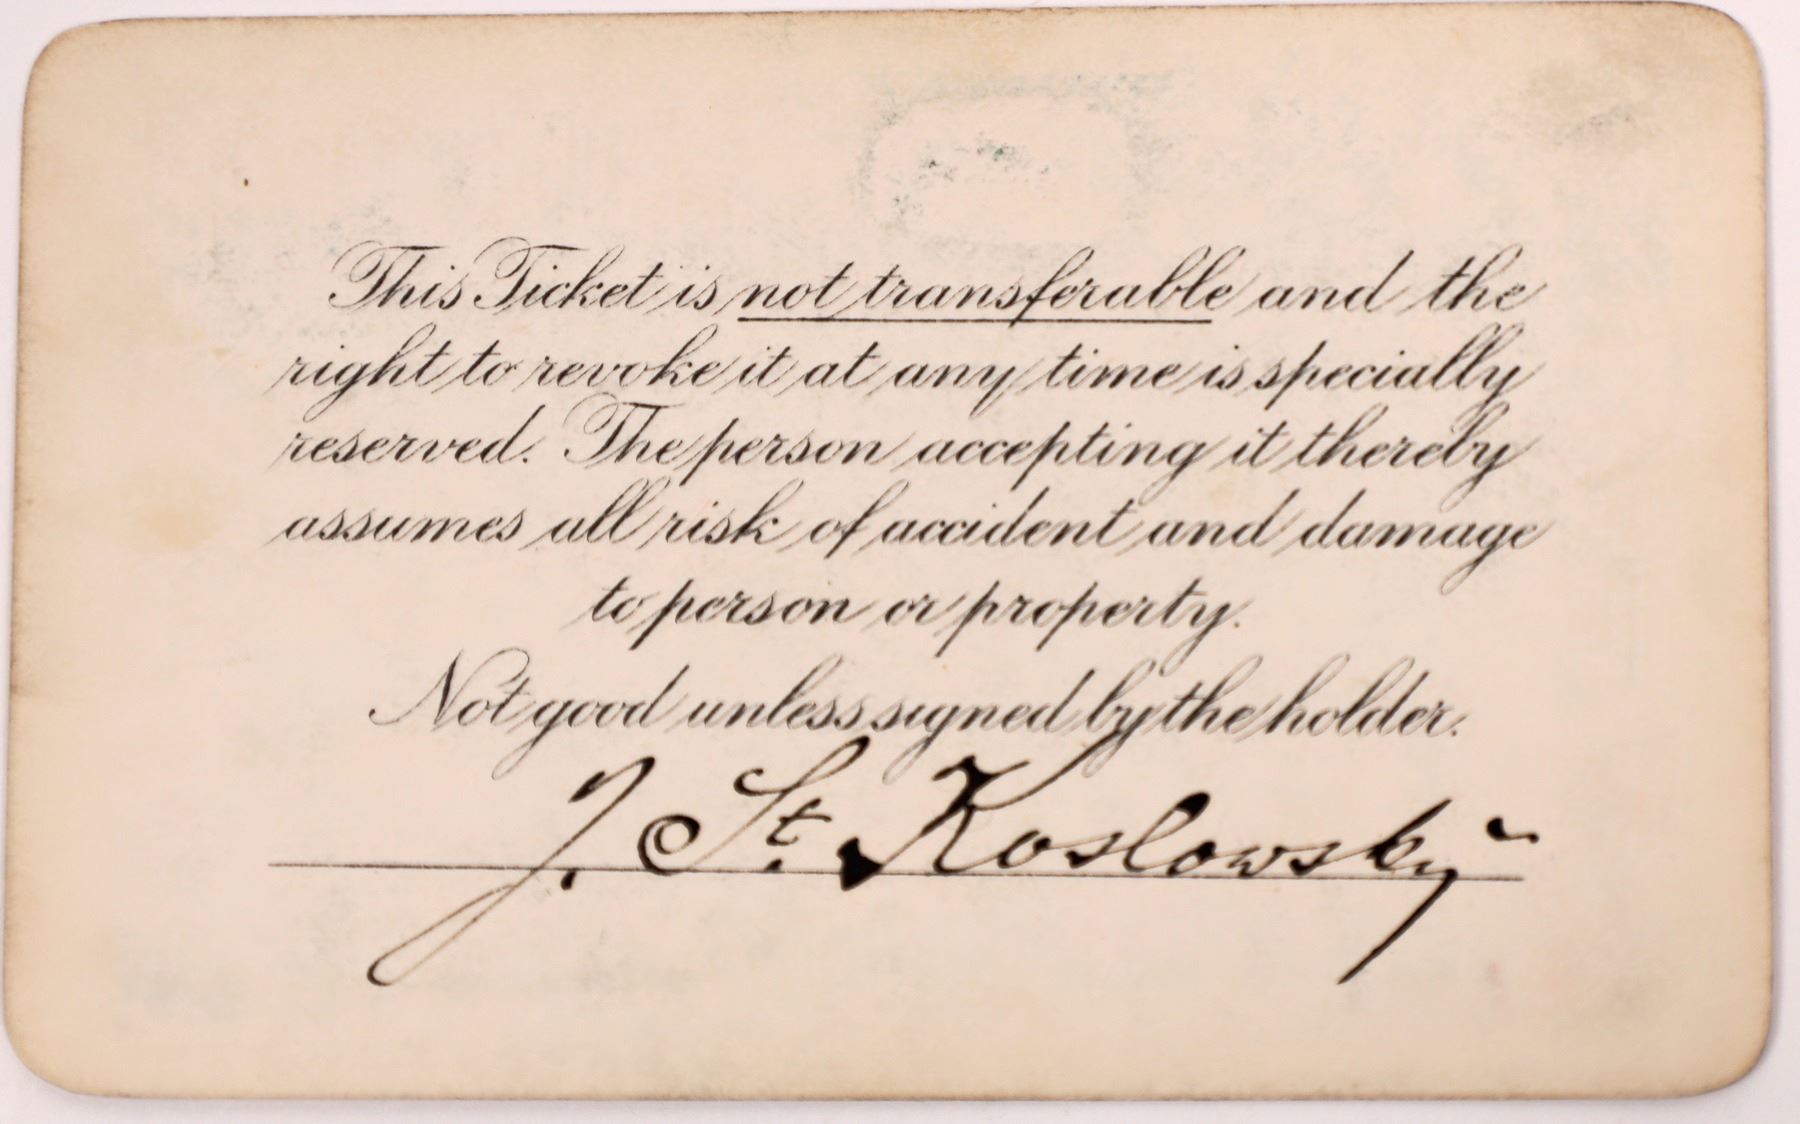 This Ticket is not transferable and the
right to revoke it at any time is specially
reserved. The person accepting it thereby
assumes all risk of accident and damage
to person or property.
Not good unless signed by the holder.
J. St. Koslowsky